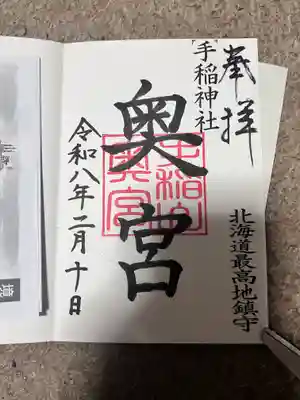 奉拝
北海道最高地鎮守
手稲神社
奥宮
手稲山
奥宮
令和八年二月十日